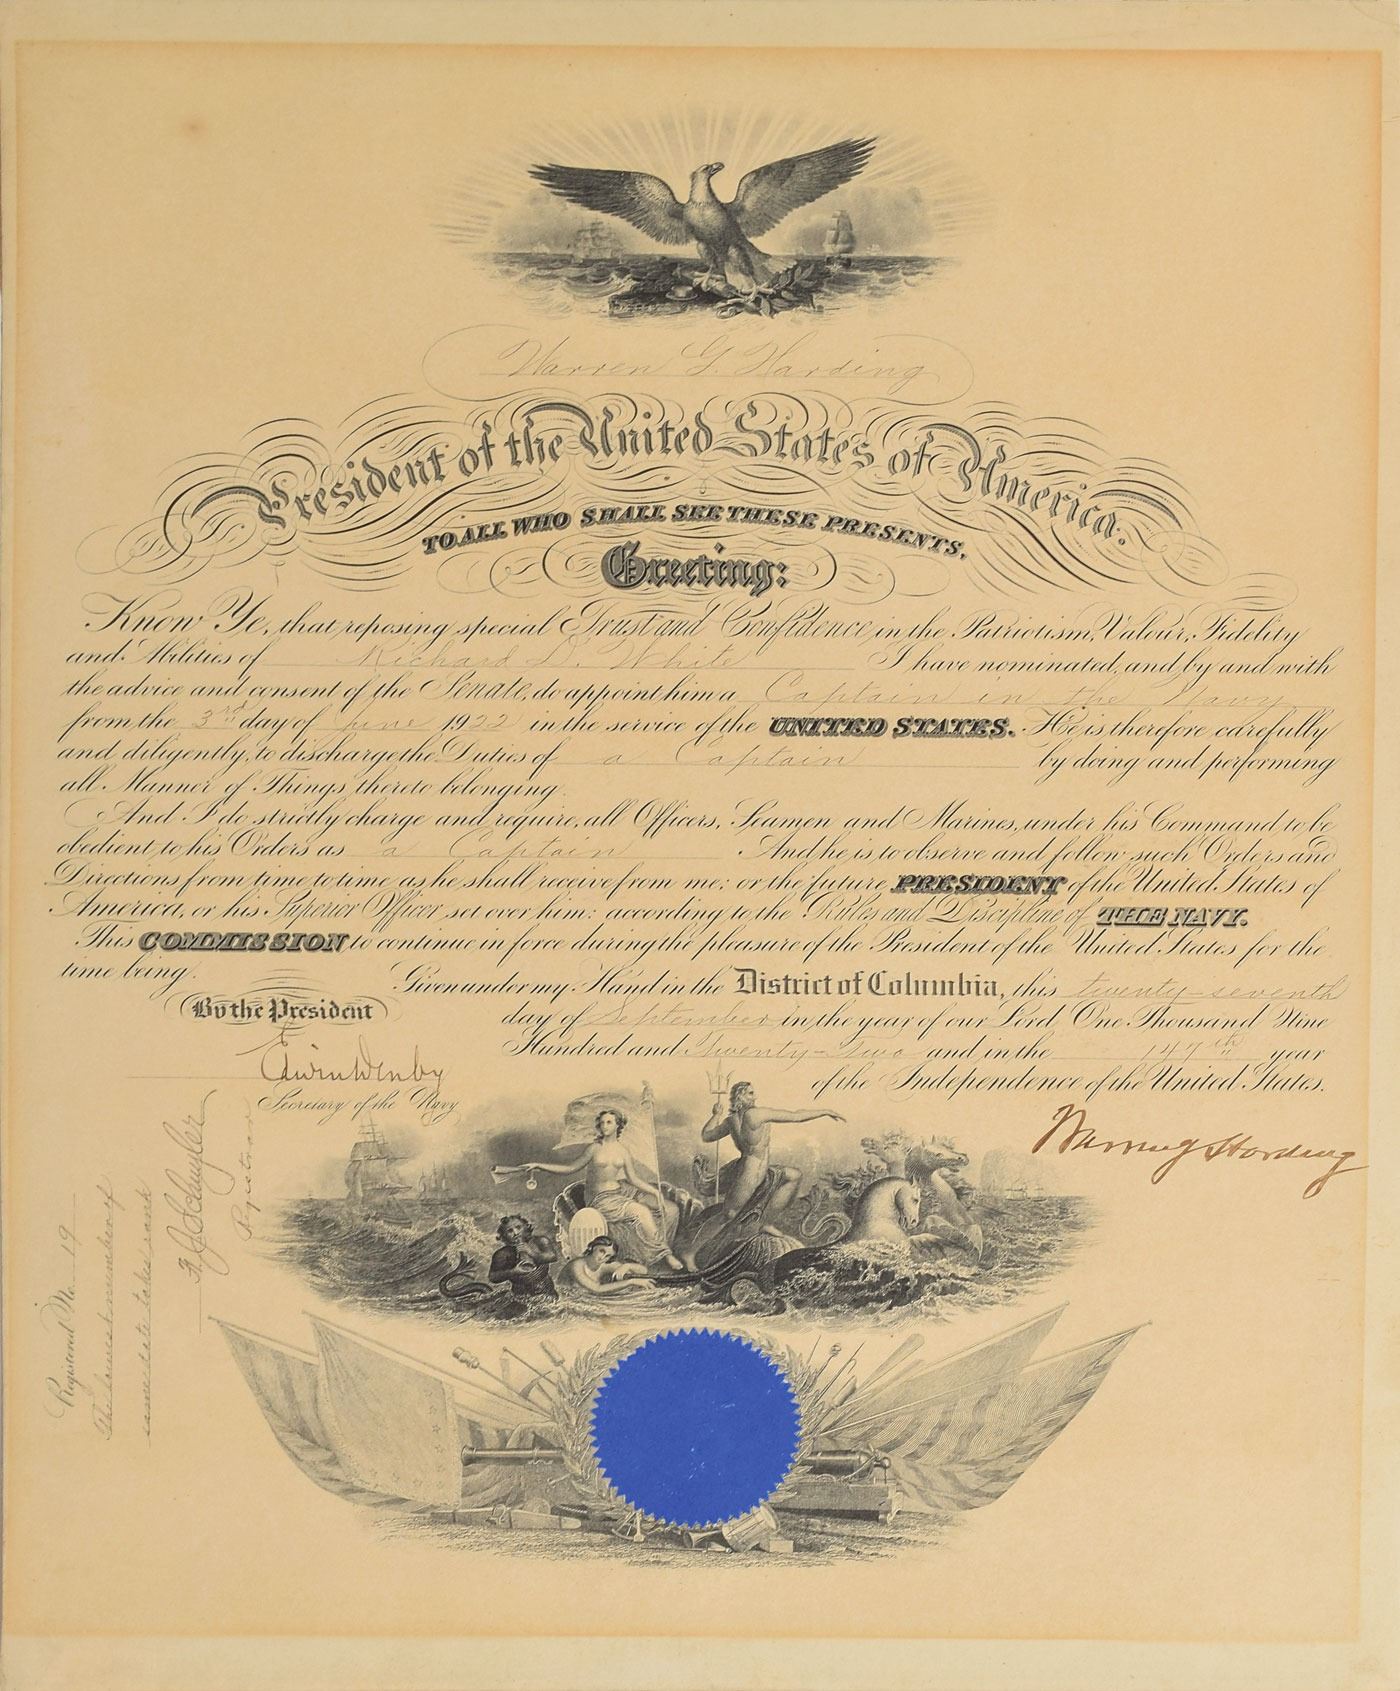 Warren G. Harding
President of the United States of America.
TO ALL WHO SHALL SEE THESE PRESENTS,
Greeting:
Know Ye, that reposing special Trust and Confidence in the Patriotism, Valour, Fidelity
and Abilities of Richard D. White I have nominated, and by and with
the advice and consent of the Senate, do appoint him a Captain in the Navy
from the 3rd day of June 1922 in the service of the UNITED STATES. He is therefore carefully
and diligently, to discharge the Duties of a Captain by doing and performing
all Manner of Things thereto belonging.
And I do strictly charge and require, all Officers, Seamen and Marines, under his Command to be
obedient to his Orders as a Captain And he is to observe and follow such Orders and
Directions from time to time as he shall receive from me; or the future PRESIDENT of the United States of
America, or his Superior Officer set over him: according to the Rules and Discipline of THE NAVY.
This COMMISSION to continue in force during the pleasure of the President of the United States for the
time being.
Given under my Hand in the District of Columbia, this twenty-seventh
day of September in the year of our Lord, One Thousand Nine
Hundred and Twenty-two and in the 147th year
of the Independence of the United States.
By the President
Edwin Denby
Secretary of the Navy
Warren G Harding
Registered No. 19
The lowest number of
same date takes rank
F J Schuyler
Registrar